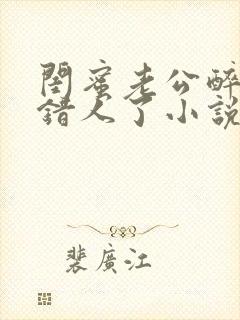 閨蜜老公醉
錯人了小說
裴廣江